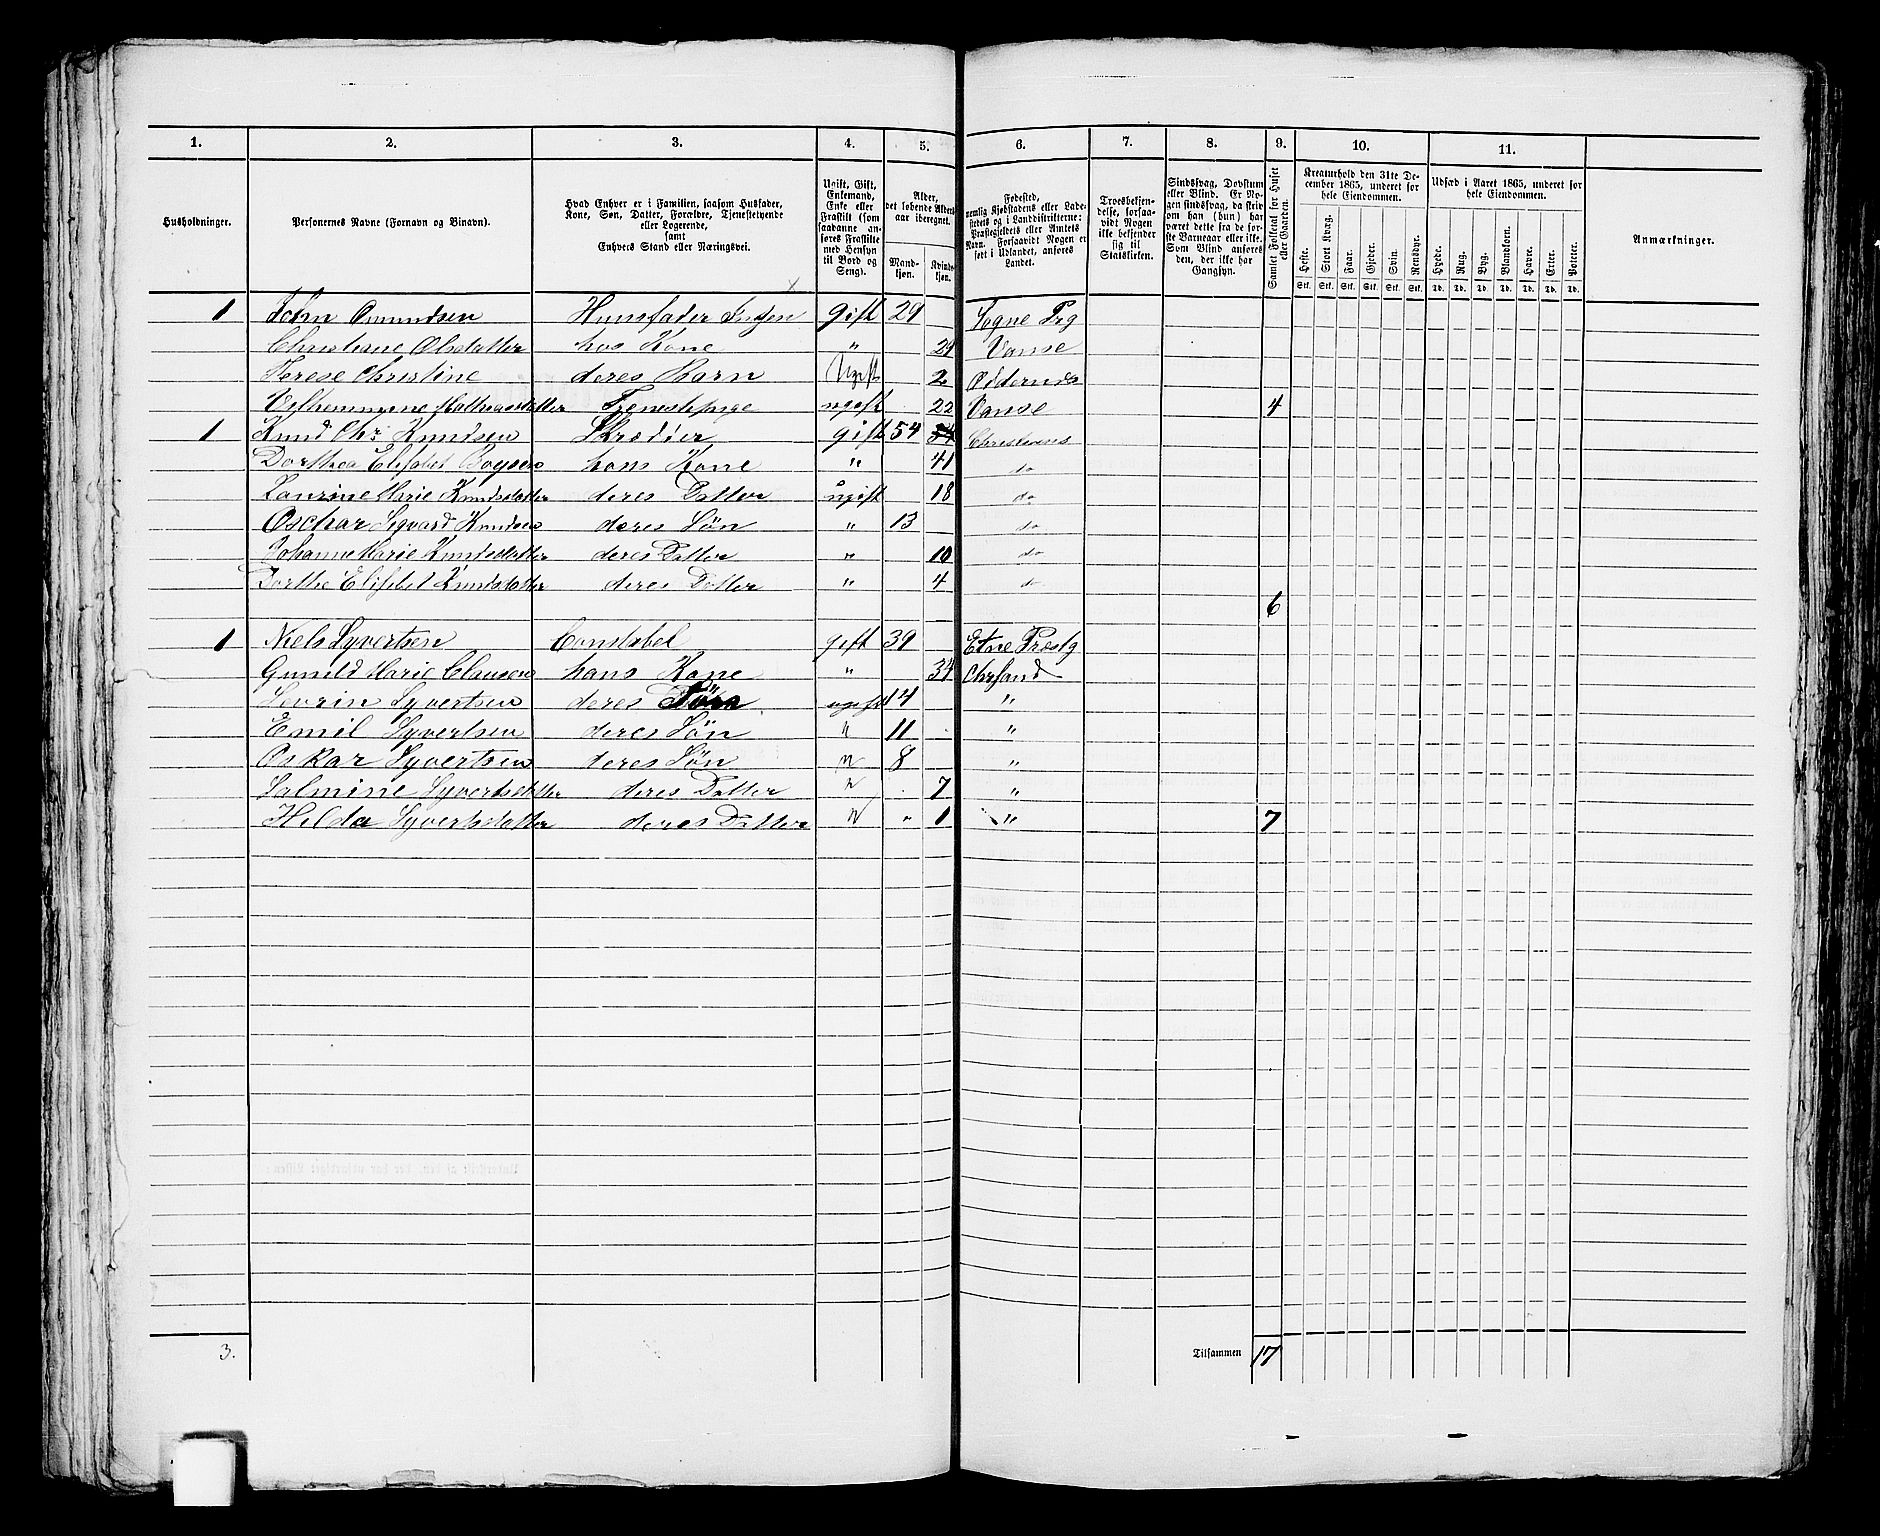 1. 2. 3. 4. 5. 6. 7. 8. 9. 10. 11.
Husholdninger.
Personernes Navne (Fornavn og Binavn).
Hvad Enhver er i Familien, saasom Husfader,
Kone, Søn, Datter, Forældre, Tjenestetyende
eller Logerende,
samt
Enhvers Stand eller Næringsvei.
Ugift, Gift,
Enkemand,
Enke eller
Fraskilt (som
saadanne an-
føres Fraskilte
med Hensyn
til Bord og
Seng).
Alder,
det løbende Alders-
aar iberegnet.
Mand-
kjøn.
Kvinde-
kjøn.
Fødested,
nemlig Kjøbstadens eller Lade-
stedets og i Landdistrikterne:
Præstegjeldets eller Amtets
Navn. Forsaavidt Nogen er
født i Udlandet, anføres
Landet.
Troesbekjen-
delse, forsaa-
vidt Nogen
ikke bekjender
sig til
Statskirken.
Sindssvag, Døvstum
eller Blind. Er No-
gen sindssvag, da skriv
om han (hun) har
været dette fra de for-
ste Barneaar eller ikke.
Som Blind anføres
den, der ikke har
Gangsyn.
Samlet Folketal for Huset
eller Gaarden.
Kreaturhold den 31te De-
cember 1865, underet for
hele Eiendommen.
Heste. Stort Kvæg. Faar. Gjeder. Svin. Rensdyr.
Stk. Stk. Stk. Stk. Stk. Stk.
Udsæd i Aaret 1865, underet for
hele Eiendommen.
Hvede. Rug. Byg. Blandkorn. Havre. Erter. Poteter.
Td. Td. Td. Td. Td. Td. Td.
Anmærkninger.
1 John Omundsen Huusfader gift 29 Sogne Prg
Christiane Olsdatter hos Kone " 29 Vanse
Terese Christine deres Barn Ugift 2 Oddernes
Vilhemmine Tjenestepige ugift 22 Vanse 4
1 Knud Chr. Knudsen Skrædder gift 54 54
Dorthea Elisabet Boysen hans Kone " 41 do
Laurine Marie Knudsdatter deres Datter ugift 18 do
Oschar Sigvard Knudsen deres Søn " 13 do
Johanne Marie Knudsdatter deres Datter " 10 do
Dorthe Elisabet Knudsdatter deres Datter " 4 do
6
1 Niels Syvertsen Constabel gift 39 Etne Præstg
Gunild Marie Clausen hans Kone " 34 Chrsand
Sevrin Syvertsen deres Søn ugift 14 "
Emil Syvertsen deres Søn " 11 "
Oskar Syvertsen deres Søn " 8 "
Salmine Syvertsdatter deres Datter " 7 "
Hilda Syvertsdatter deres Datter " " 1 " 7
3. Tilsammen 17